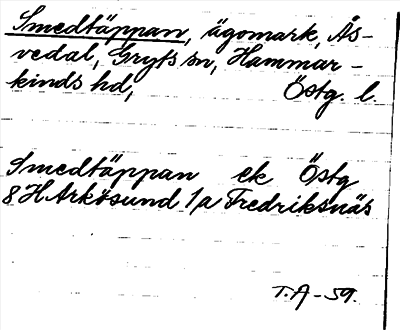 Smedtäppan, ägomark, Ås-
vedal, Gryts sn, Hammar-
kinds hd, Östg. l.
Smedtäppan ek Östg
8H Arkösund 1a Fredriksnäs
T.A-59.